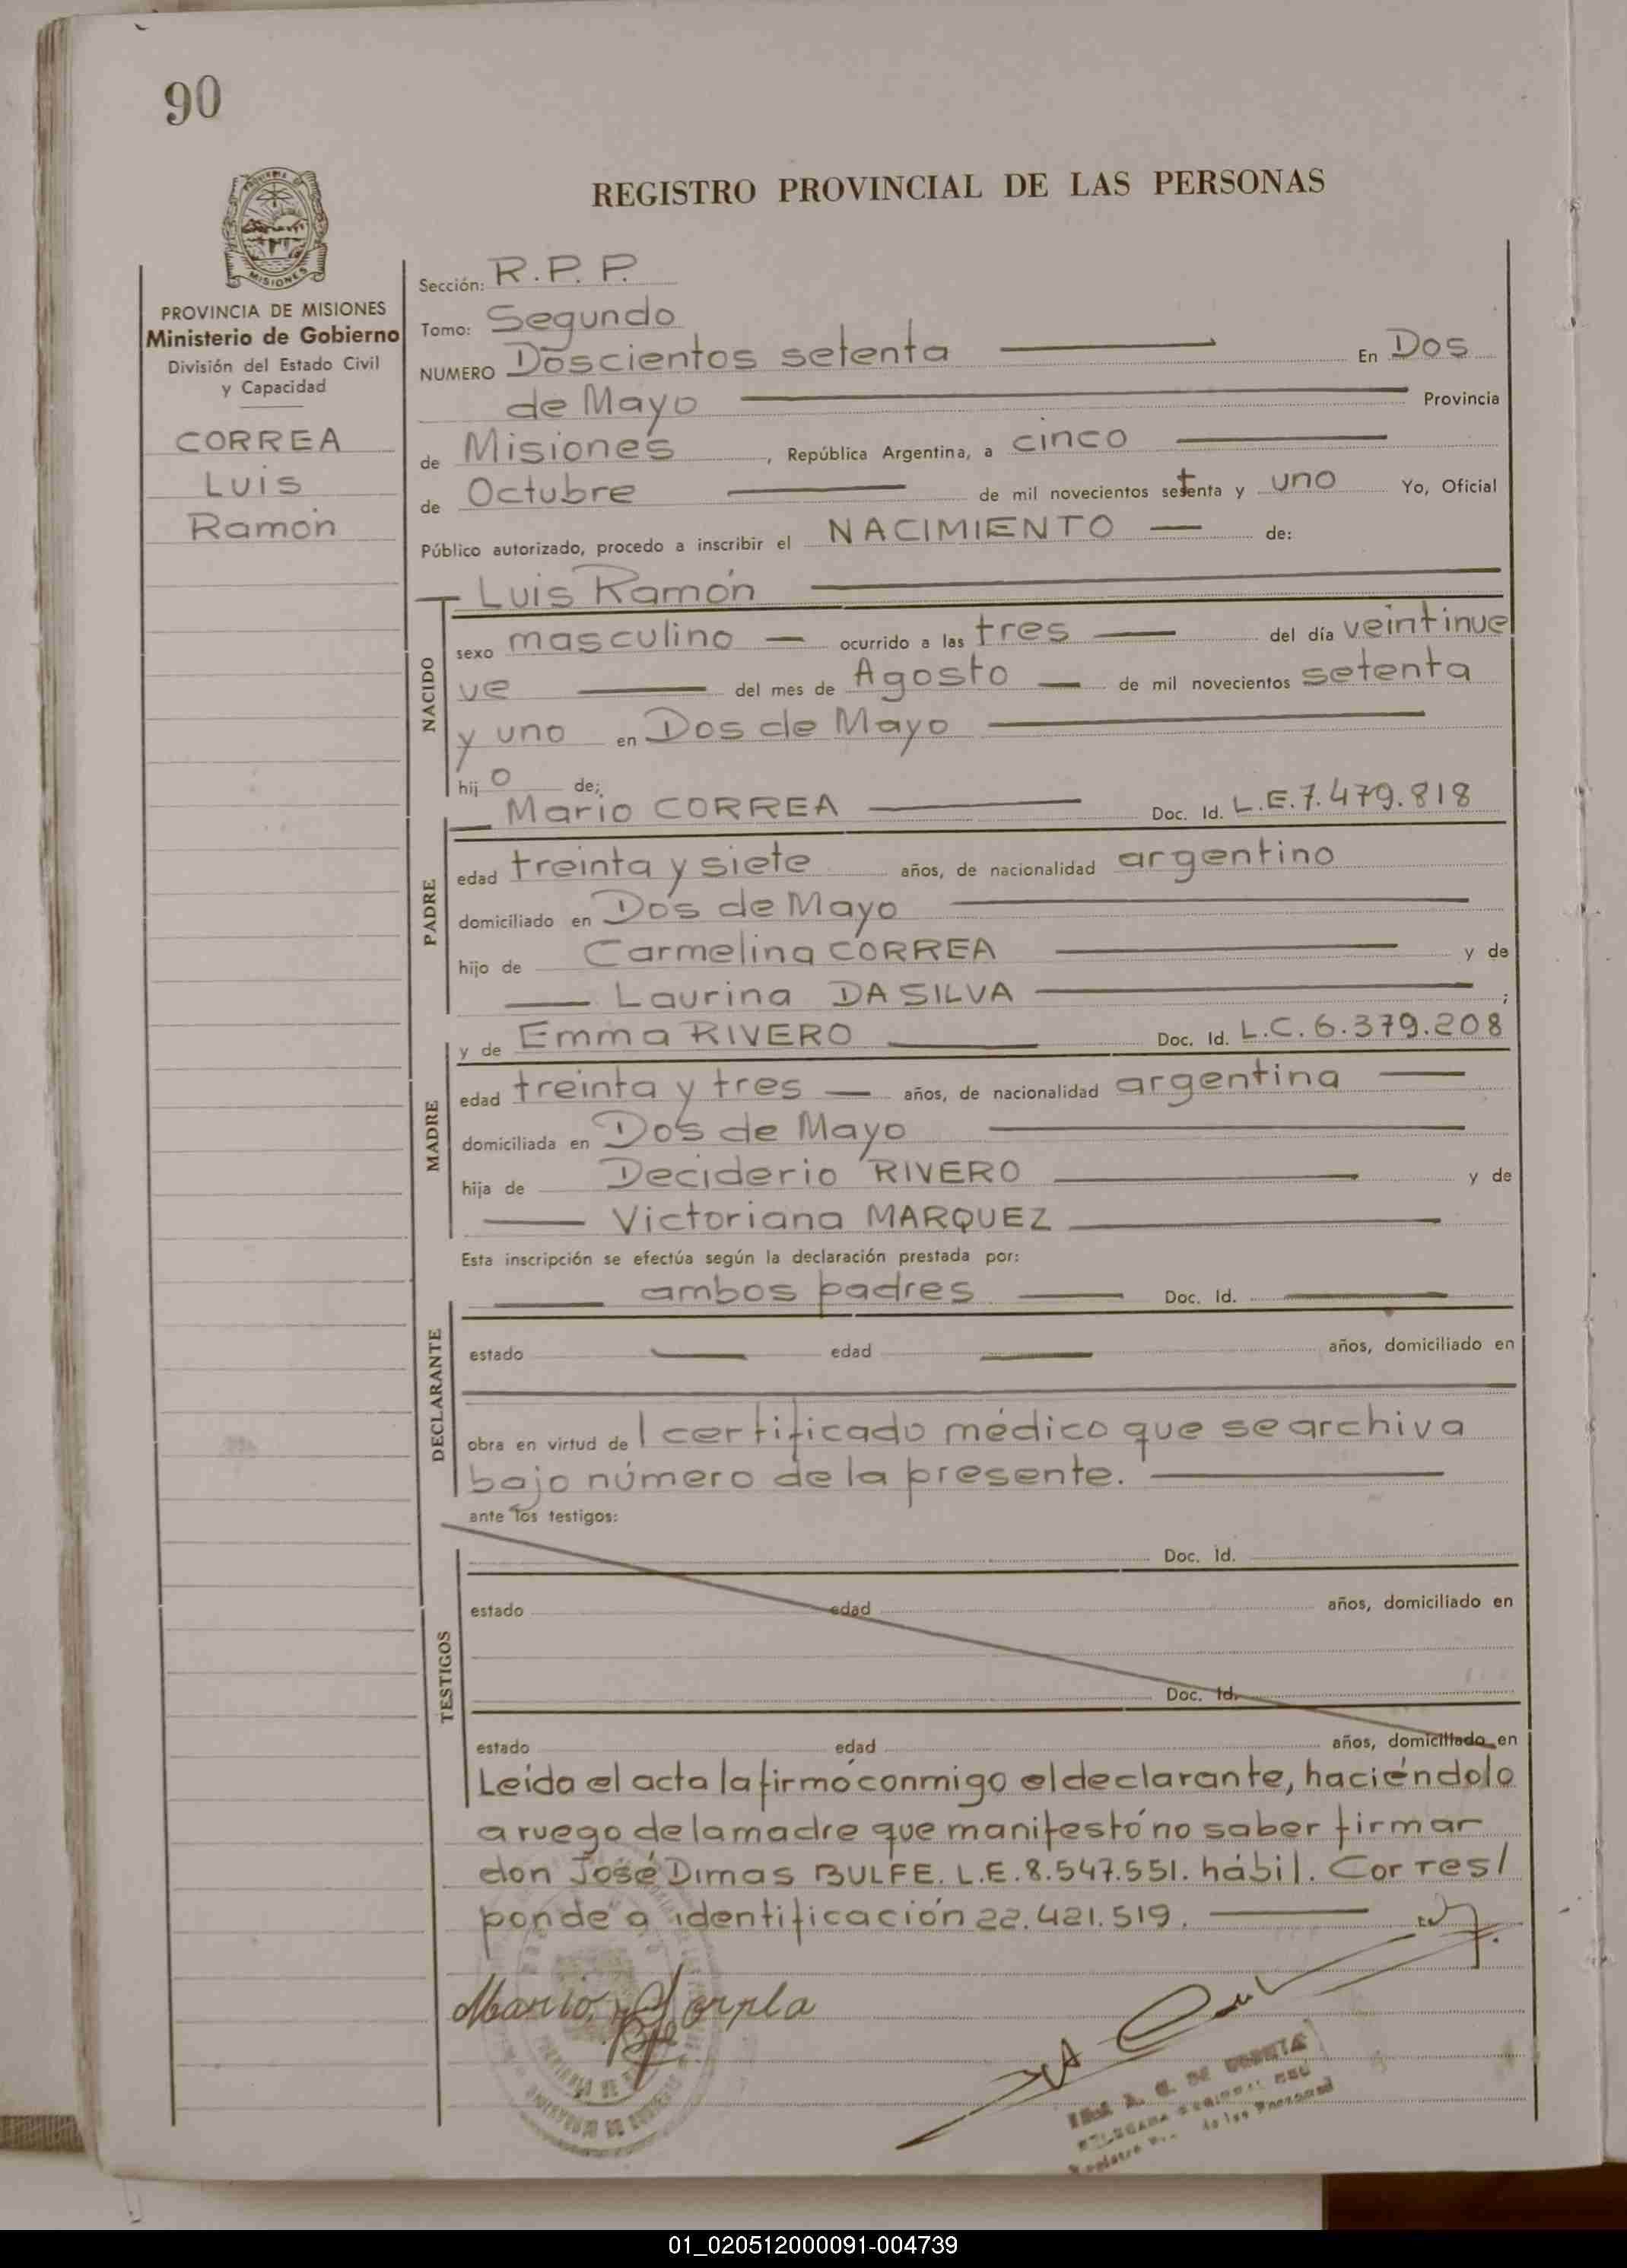 90
REGISTRO PROVINCIAL DE LAS PERSONAS
MISIONES
PROVINCIA DE MISIONES
Ministerio de Gobierno
División del Estado Civil
y Capacidad
CORREA
Luis
Ramón
Sección: R.P.P.
Tomo: Segundo
NUMERO Doscientos setenta En Dos
de Mayo Provincia
de Misiones, República Argentina, a cinco
de Octubre de mil novecientos setenta y uno Yo, Oficial
Público autorizado, procedo a inscribir el NACIMIENTO de:
Luis Ramón
NACIDO
sexo masculino ocurrido a las tres del día veintinue
ve del mes de Agosto de mil novecientos setenta
y uno en Dos de Mayo
hijo de:
Mario CORREA Doc. Id. L.E.7.479.818
PADRE
edad treinta y siete años, de nacionalidad argentino
domiciliado en Dos de Mayo
hijo de Carmelina CORREA y de
Laurina DA SILVA ;
y de Emma RIVERO Doc. Id. L.C.6.379.208
MADRE
edad treinta y tres años, de nacionalidad argentina
domiciliada en Dos de Mayo
hija de Deciderio RIVERO y de
Victoriana MARQUEZ
Esta inscripción se efectúa según la declaración prestada por:
ambos padres Doc. Id.
DECLARANTE
estado edad años, domiciliado en
obra en virtud de l certificado médico que se archiva
bajo número de la presente.
ante los testigos:
Doc. Id.
TESTIGOS
estado edad años, domiciliado en
Doc. Id.
estado edad años, domiciliado en
Leída el acta la firmó conmigo el declarante, haciéndolo
a ruego de la madre que manifestó no saber firmar
don José Dimas BULFE. L.E.8.547.551. hábil. Corres/
ponde a identificación 22.421.519.
Mario
01_020512000091-004739